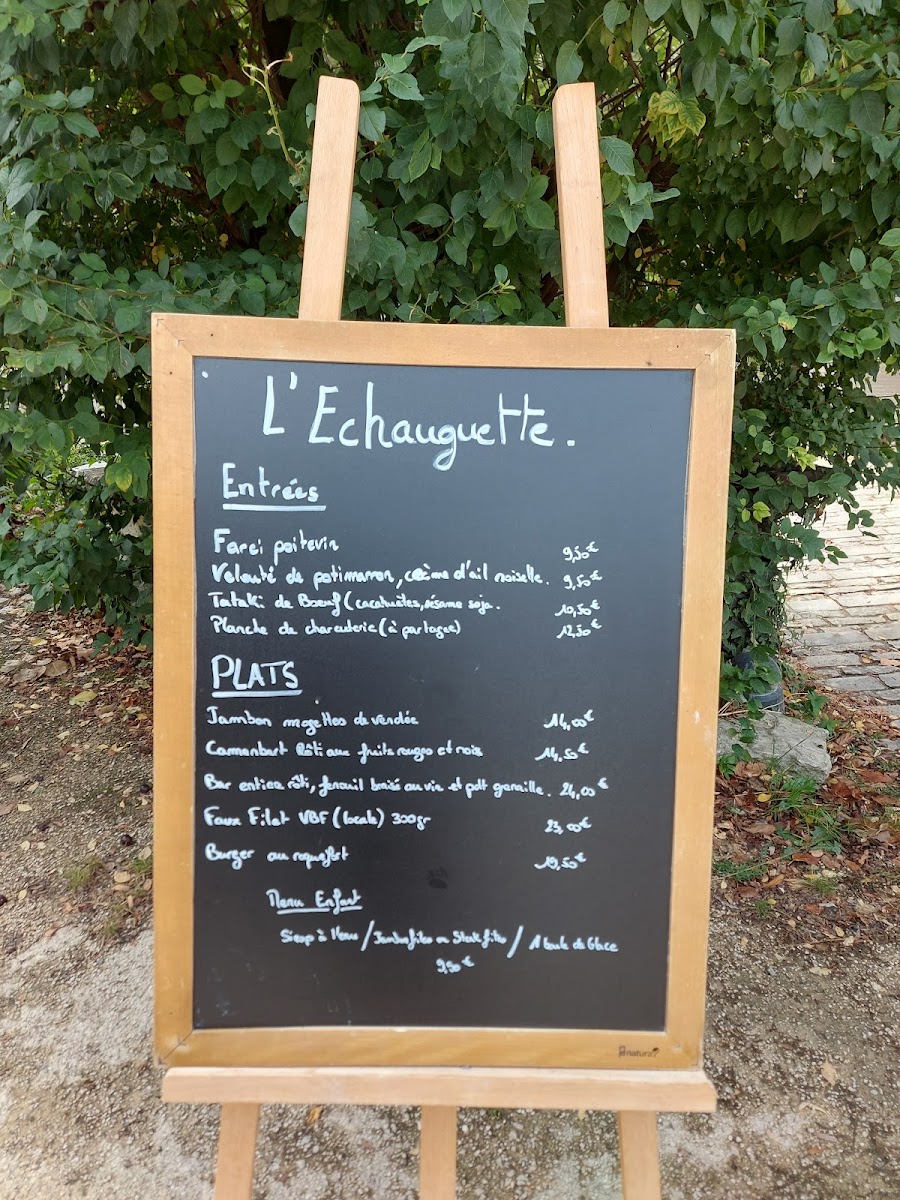 L'Echauguette.
Entrées
Farci poitevin 9,50€
Velouté de potimarron, crème d'ail noiselle. 9,50€
Tataki de Boeuf (cacahuètes, sésame soja. 10,50€
Planche de charcuterie (à partager) 12,50€
PLATS
Jambon mogettes de vendée 14,00€
Camembert Rôti aux fruits rouges et noix 14,50€
Bar entier rôti, fenouil braisé au vin et pdt grenaille. 24,00€
Faux Filet VBF (locale) 300gr 23,00€
Burger au roquefort 19,50€
Menu Enfant
Sirop à l'eau / Jambon frites ou Steak frites / 1 boule de Glace
9,50€
natura